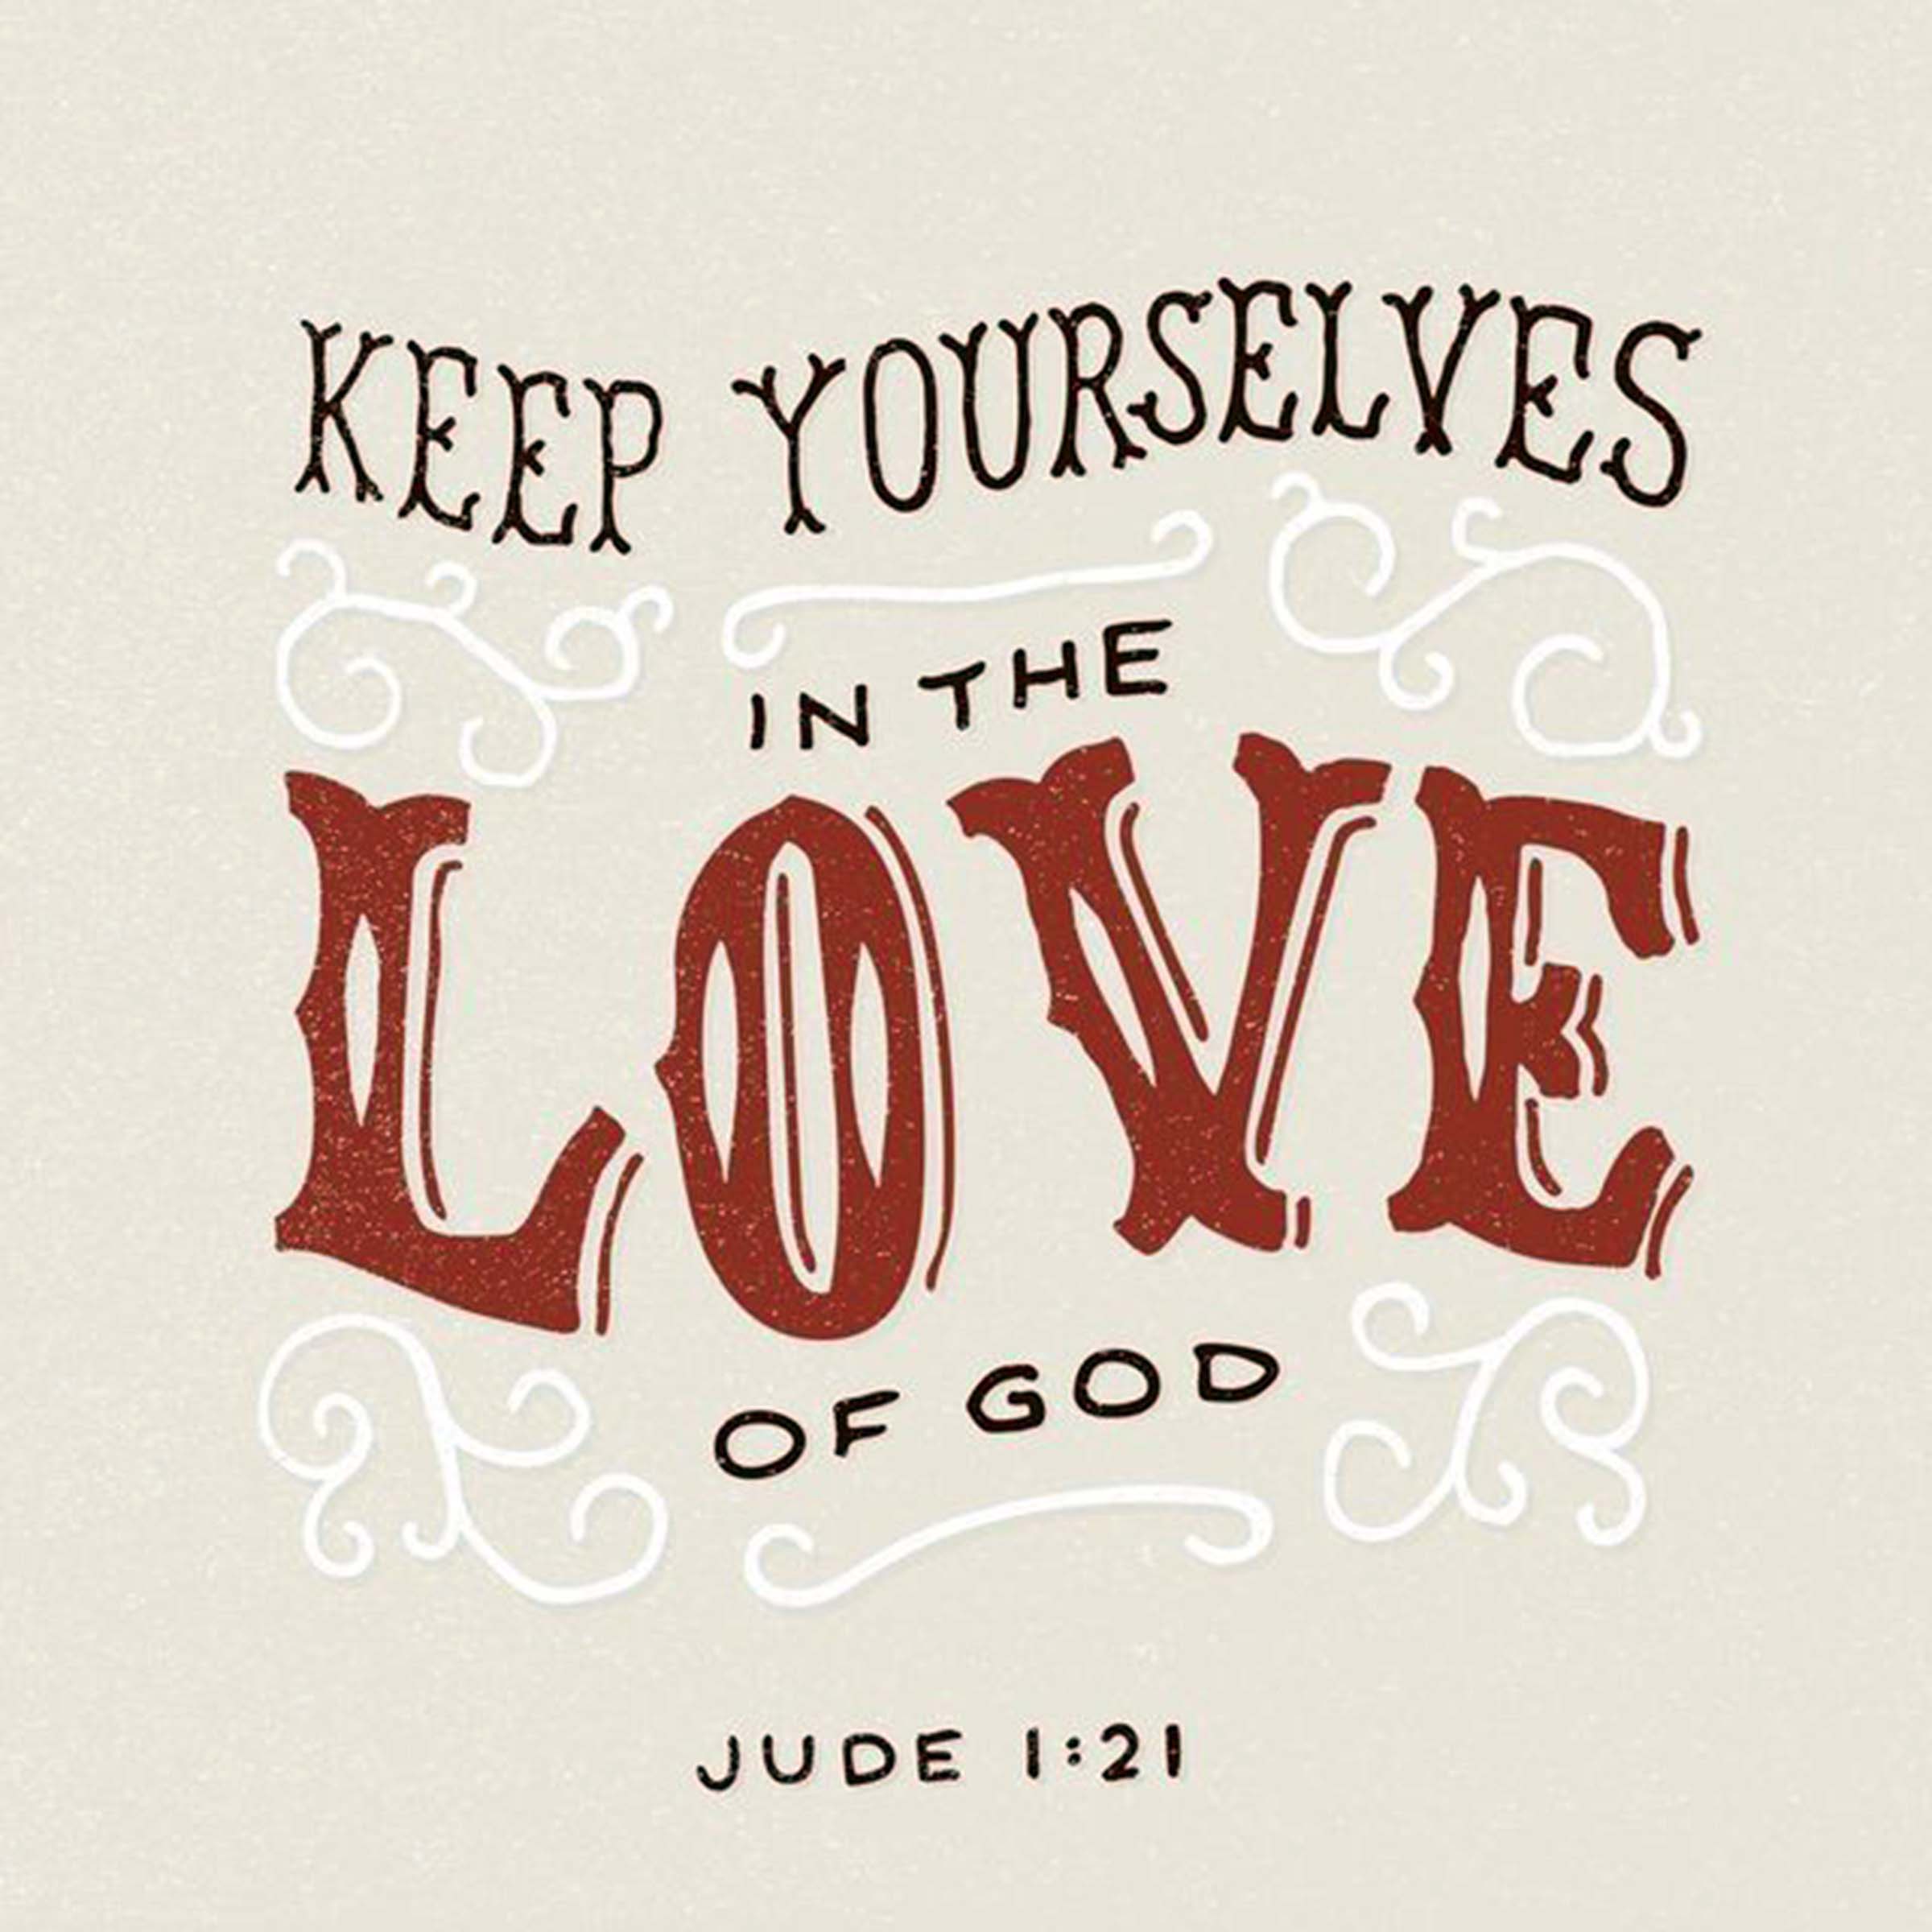 KEEP YOURSELVES
IN THE
LOVE
OF GOD
JUDE 1:21